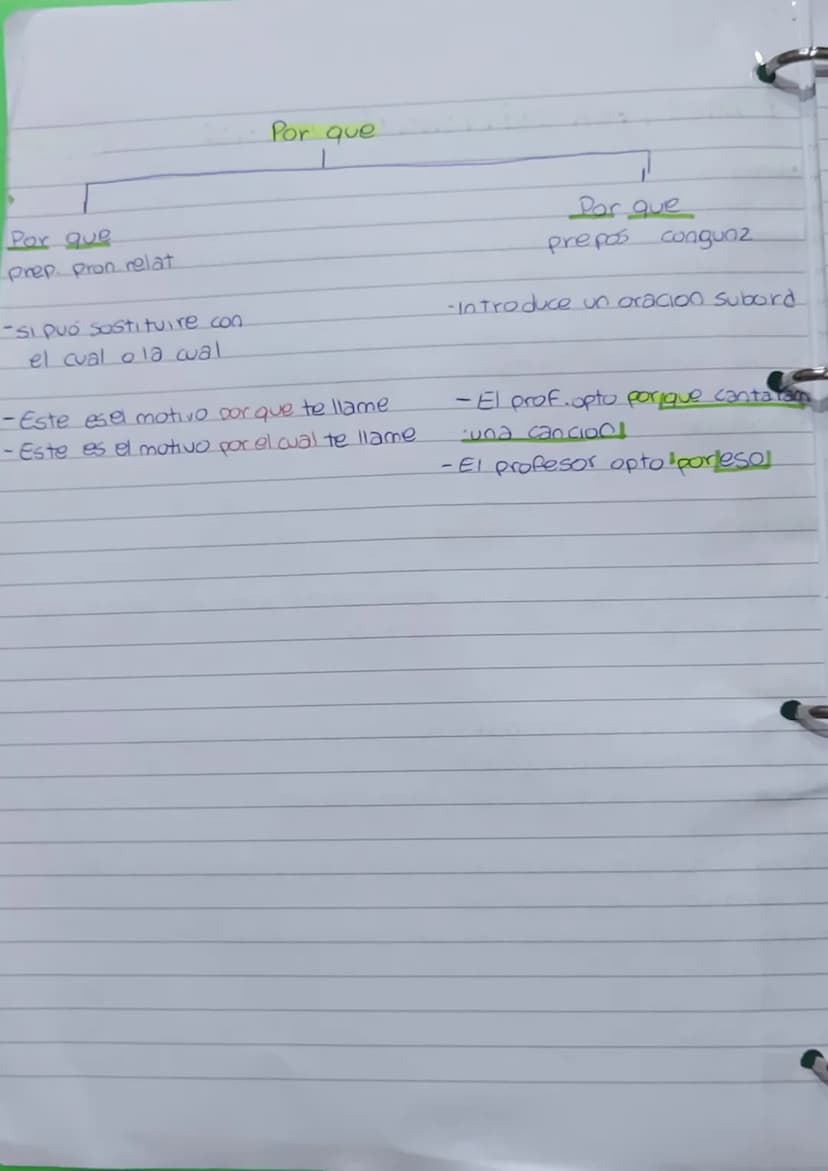 Por que
Por que
prep. pron relat
- si puó sostituire con
el cual o la cual
- Este es el motivo por que te llame
- Este es el motivo por el cual te llame
Por que
prepos congunz
- introduce un oracion subord
- El prof. opto por que cantaran
una cancion
- El profesor opto por eso